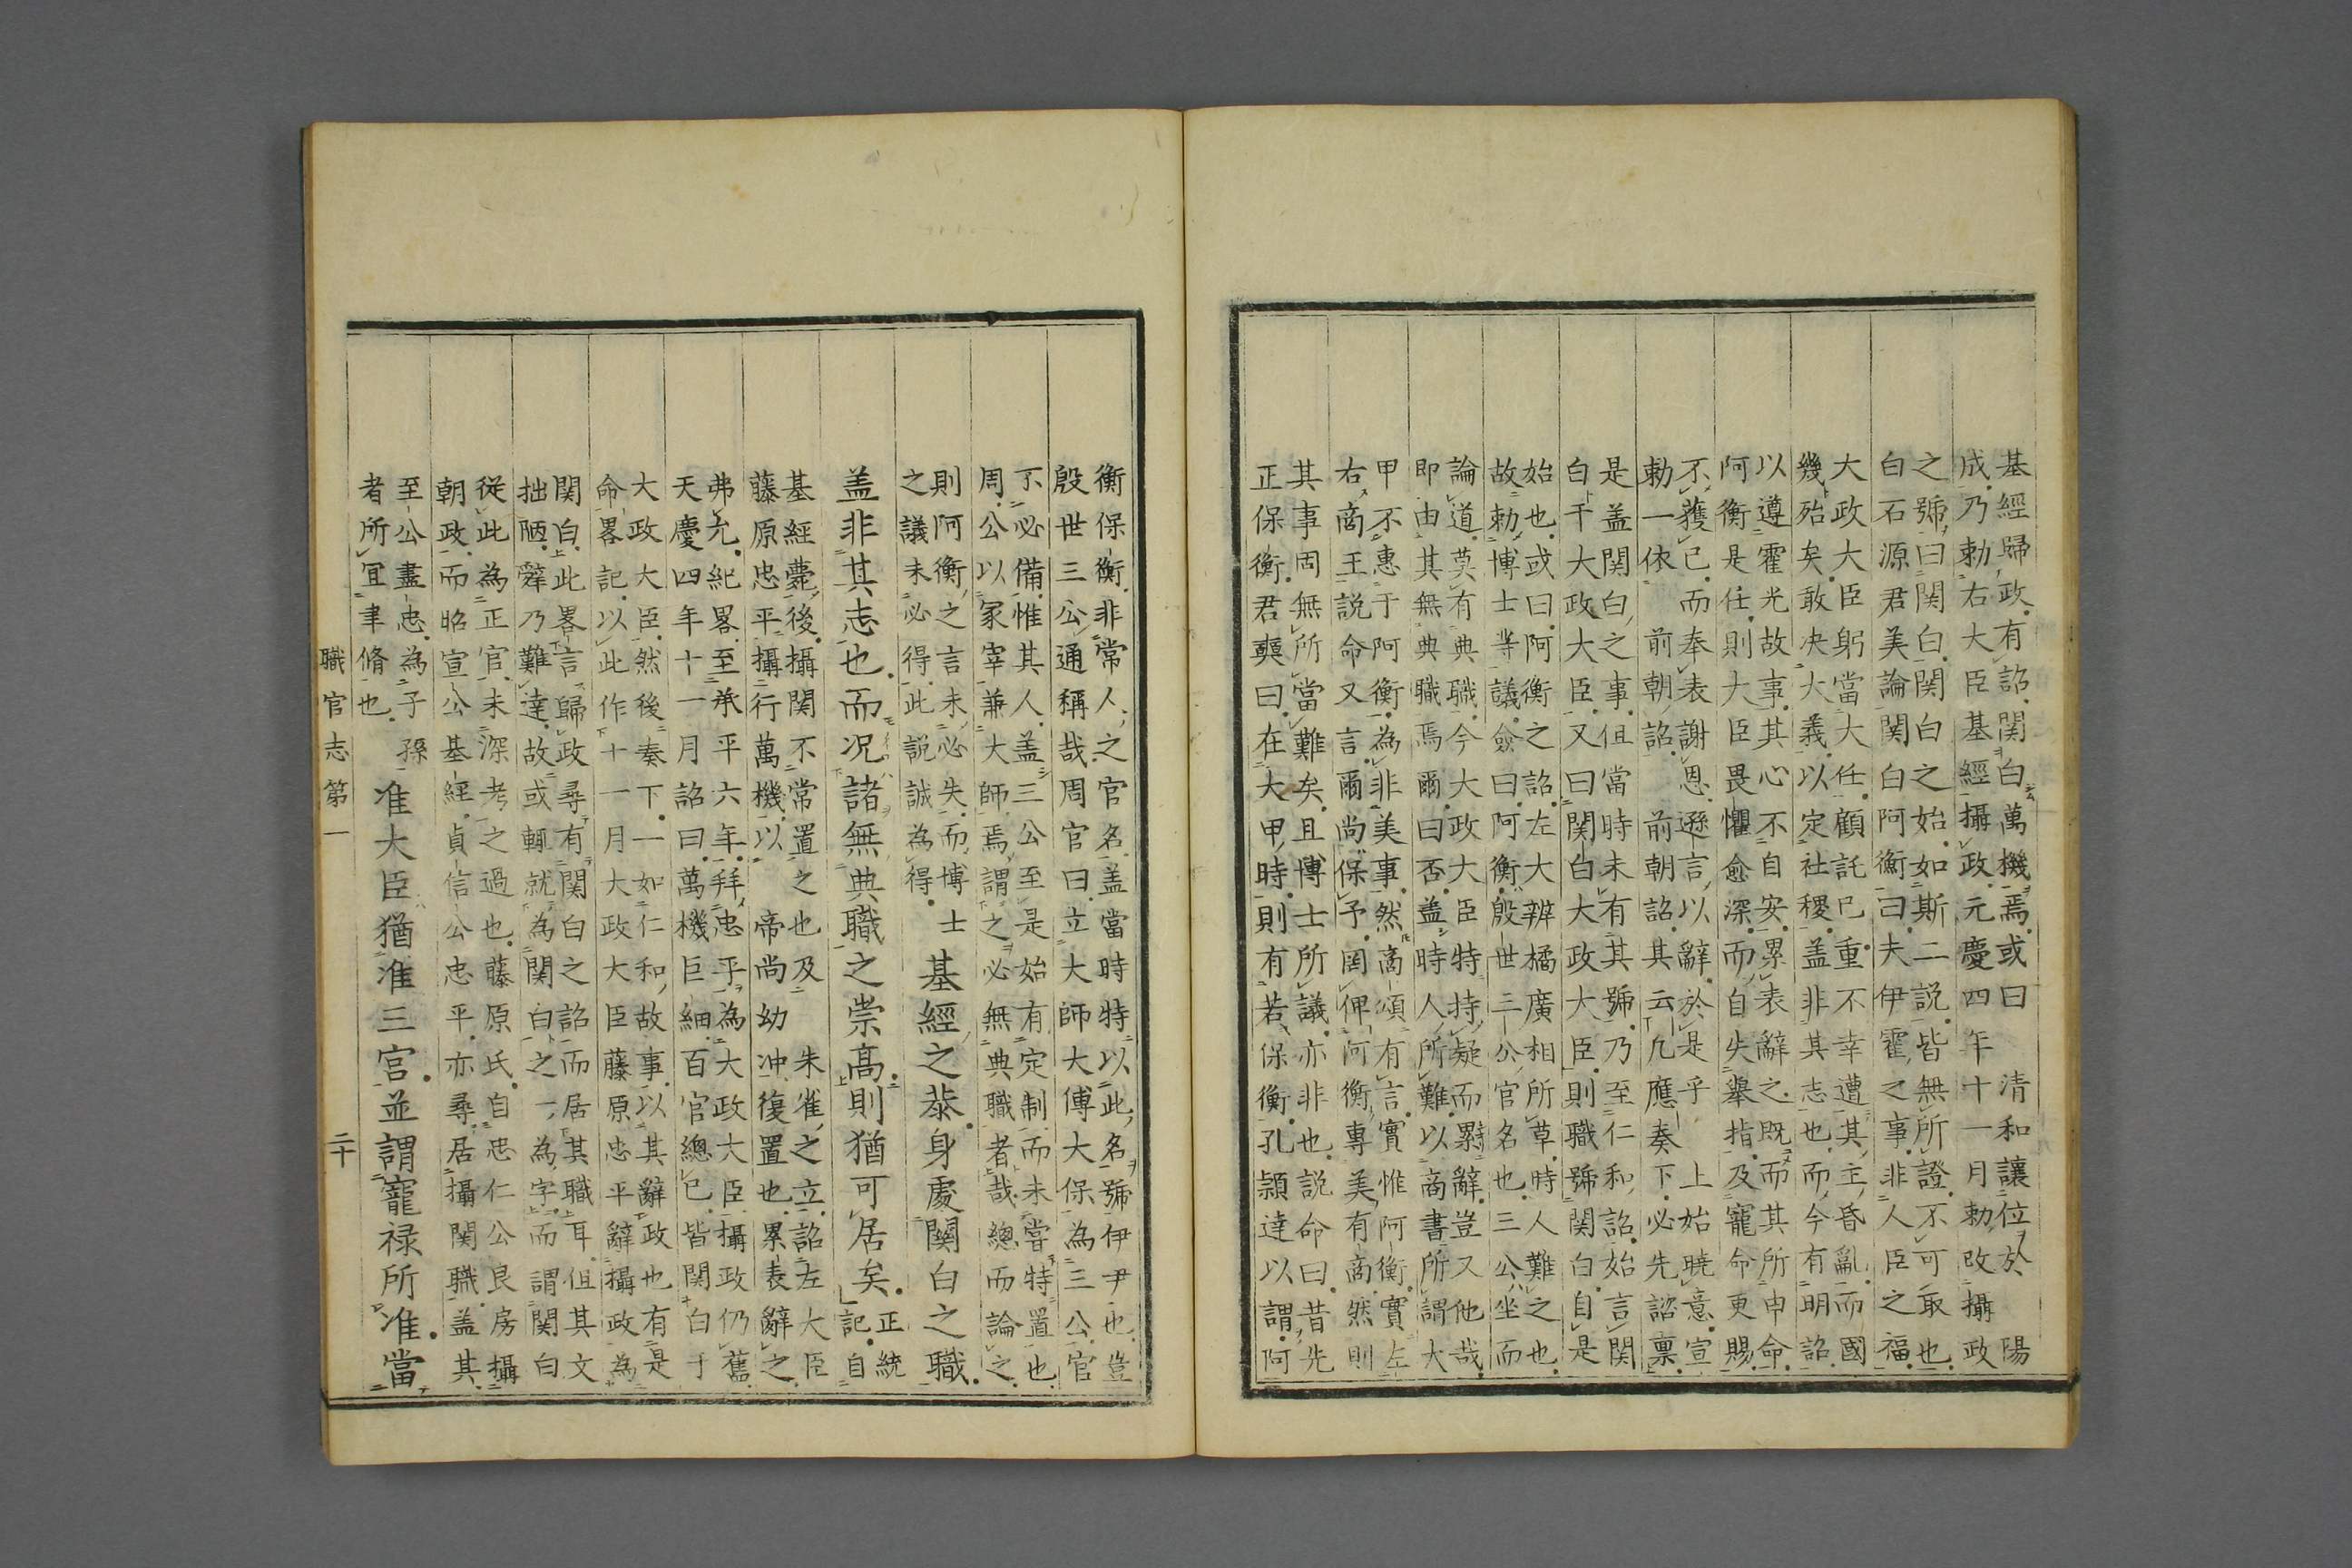 基經歸政有詔関白萬機焉或曰 清和讓位於 陽
成乃勅右大臣基經攝政元慶四年十一月勅改攝政
之號曰関白関白之始如斯二説皆無所證不可取也
白石源君美論関白阿衡曰夫伊霍之事非人臣之福
大政大臣躬當大任顧託已重不幸遭其主昏亂而國
幾殆矣敢决大義以定社稷盖非其志也而今有明詔
以遵霍光故事其心不自安累表辭之既而其所申命
阿衡是任則大臣畏懼愈深而自失舉指及寵命更賜
不獲已而奉表謝恩遜言以辭於是乎 上始曉意宣
勅一依 前朝詔 前朝詔其云凡應奏下必先諮禀
是盖関白之事但當時未有其號乃至仁和詔始言関
白于大政大臣又曰関白大政大臣則職號関白自是
始也或曰阿衡之詔左大辨橘廣相所草時人難之也
故勅博士等議僉曰阿衡殷世三公官名也三公坐而
論道莫有典職今大政大臣特持疑而累辭豈又他哉
即由其無典職焉爾曰否盖時人所難以商書所謂大
甲不惠于阿衡為非美事然商頌有言實惟阿衡實左
右商王説命又言爾尚保予罔俾阿衡專美有商然則
其事固無所當難矣且博士所議亦非也説命曰昔先
正保衡君奭曰在大甲時則有若保衡孔穎達以謂阿
衡保衡非常人之官名盖當時特以此名號伊尹也豈
殷世三公通稱哉周官曰立大師大傅大保為三公官
不必備惟其人盖三公至是始有定制而未甞特置也
周公以冢宰兼大師焉謂之必無典職者哉總而論之
則阿衡之言未必失而博士
之議未必得此説誠為得
基經之恭身處關白之職
盖非其志也而况諸無典職之崇高則猶可居矣
正統
記自
基經薨後攝関不常置之也及 朱雀之立詔左大臣
藤原忠平攝行萬機以 帝尚幼冲復置也累表辭之
弗允紀畧至承平六年拜忠平為大政大臣攝政仍舊
天慶四年十一月詔曰萬機巨細百官總已皆関白于
大政大臣然後奏下一如仁和故事以其辭政也有是
命畧記以此作十一月大政大臣藤原忠平辭攝政為
関白此畧言歸政尋有関白之詔而居其職耳但其文
拙陋辭乃難達故或輙就為関白之一為字而謂関白
從此為正官未深考之過也藤原氏自忠仁公良房攝
朝政而昭宣公基經貞信公忠平亦尋居攝関職盖其
至公盡忠為子孫
者所宜聿脩也
准大臣猶准三宮並謂寵禄所准當
職官志第一 二十